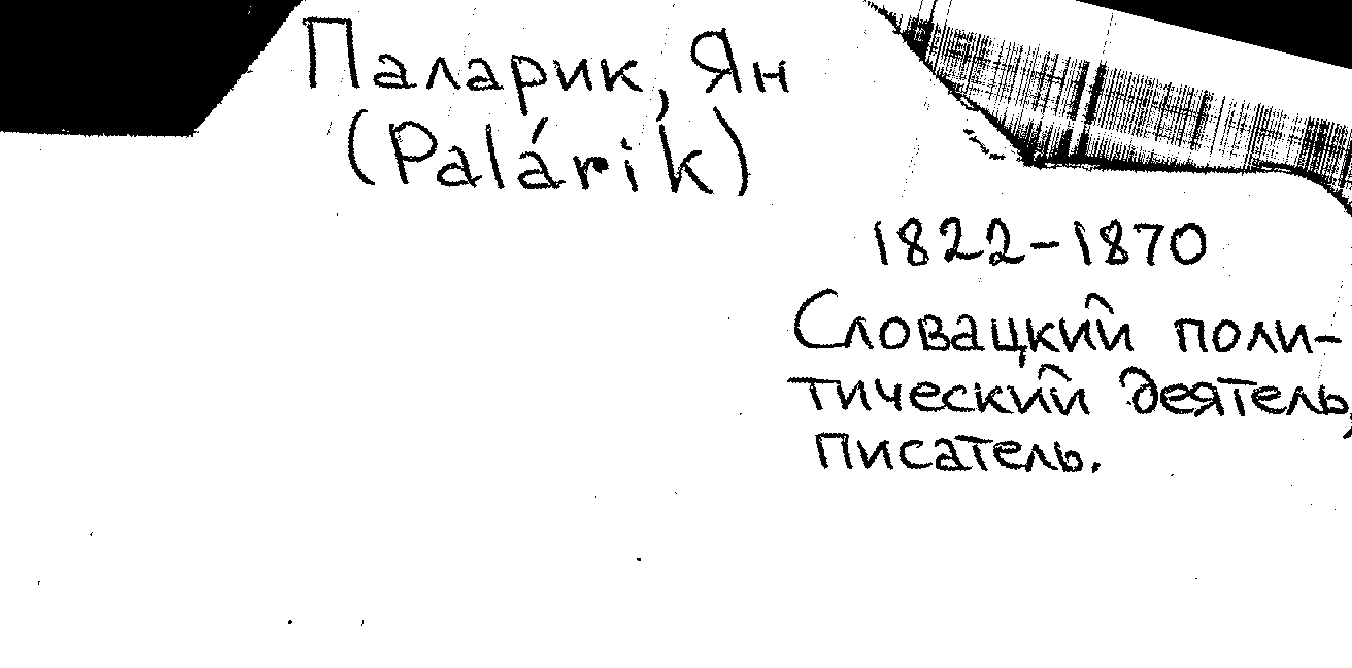 Паларик, Ян
(Palárik)
1822-1870
Словацкий поли-
тический деятель,
писатель.